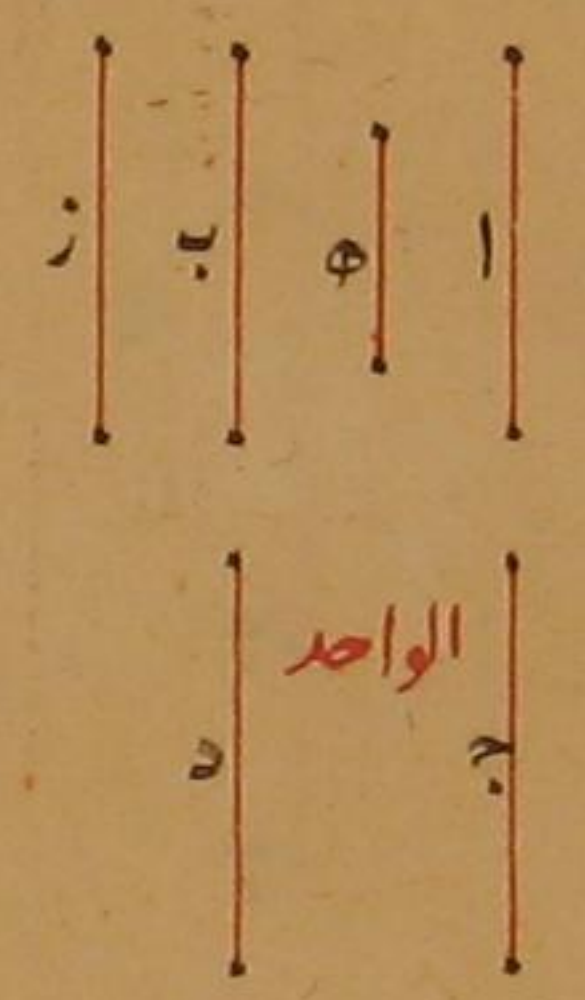 ا ه ب ز
الواحد
ج د